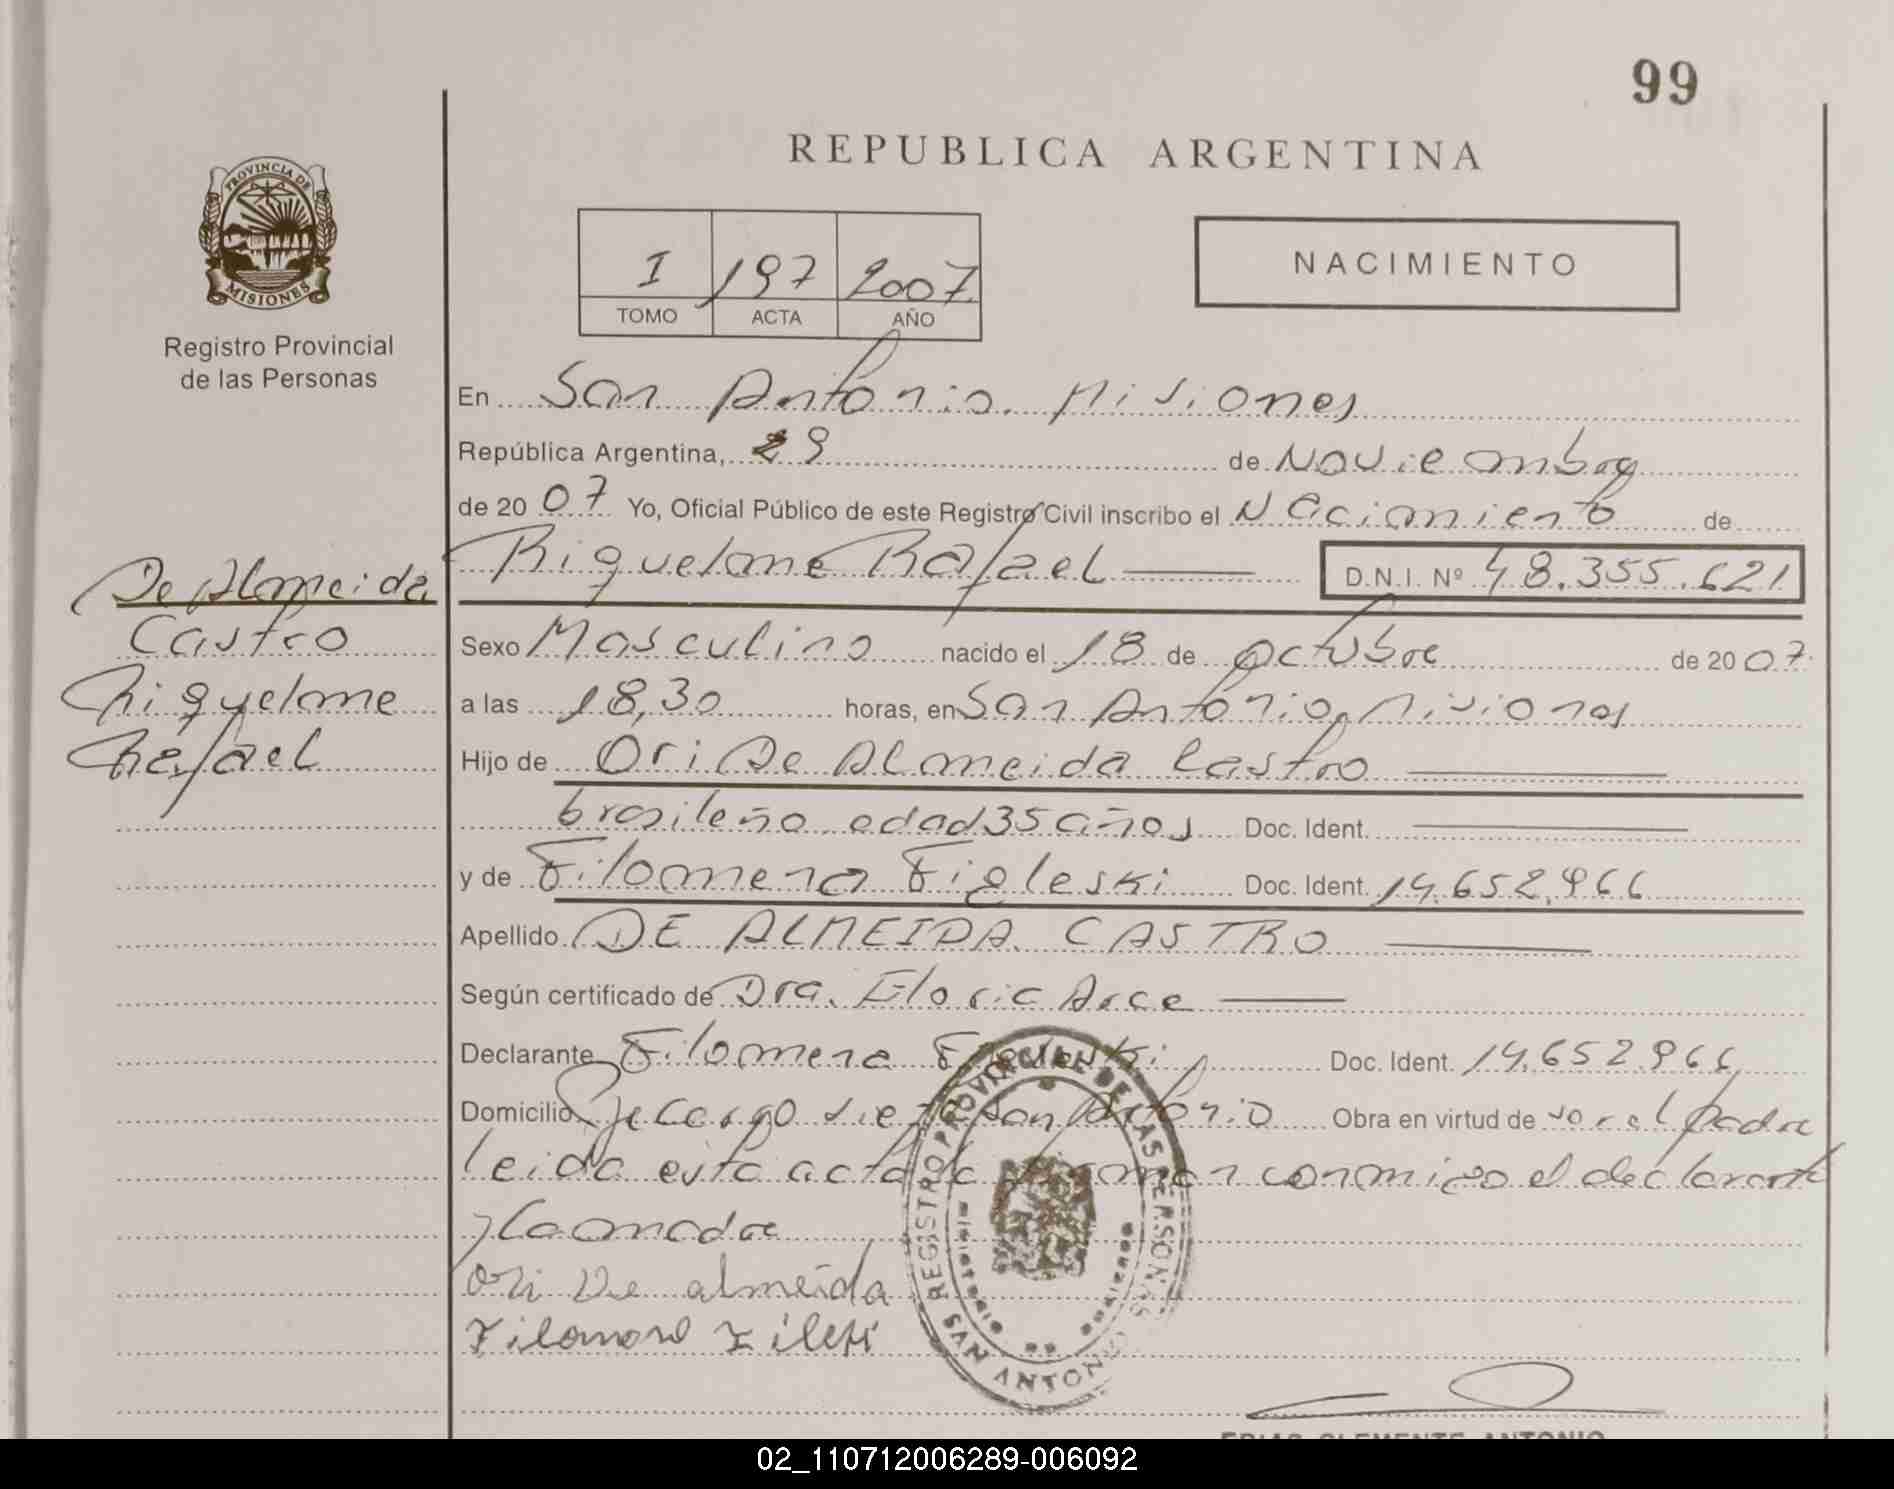 99
REPUBLICA ARGENTINA
PROVINCIA DE
MISIONES
Registro Provincial
de las Personas
I 197 2007
TOMO ACTA AÑO
NACIMIENTO
En San Antonio. Misiones
República Argentina, 29 de Noviembre
de 2007 Yo, Oficial Público de este Registro Civil inscribo el Nacimiento de
Riquelme Rafael D.N.I. Nº 48.355.621
De Almeida
Castro
Riquelme
Rafael
Sexo Masculino nacido el 18 de octubre de 2007
a las 18,30 horas, en San Antonio, Misiones
Hijo de Ori De Almeida Castro
brasileño edad 35 años Doc. Ident.
y de Filomena Figleski Doc. Ident. 14.652.966
Apellido DE ALMEIDA CASTRO
Según certificado de Dra. Arce
Declarante Filomena Doc. Ident. 14.652.966
Domicilio San Antonio Obra en virtud de ser el padre
leida esta acta la firman conmigo el declarante
y la madre
Ori De almeida
REGISTRO PROVINCIAL DE LAS PERSONAS
SAN ANTONIO
FRIAS CLEMENTE ANTONIO
02_110712006289-006092